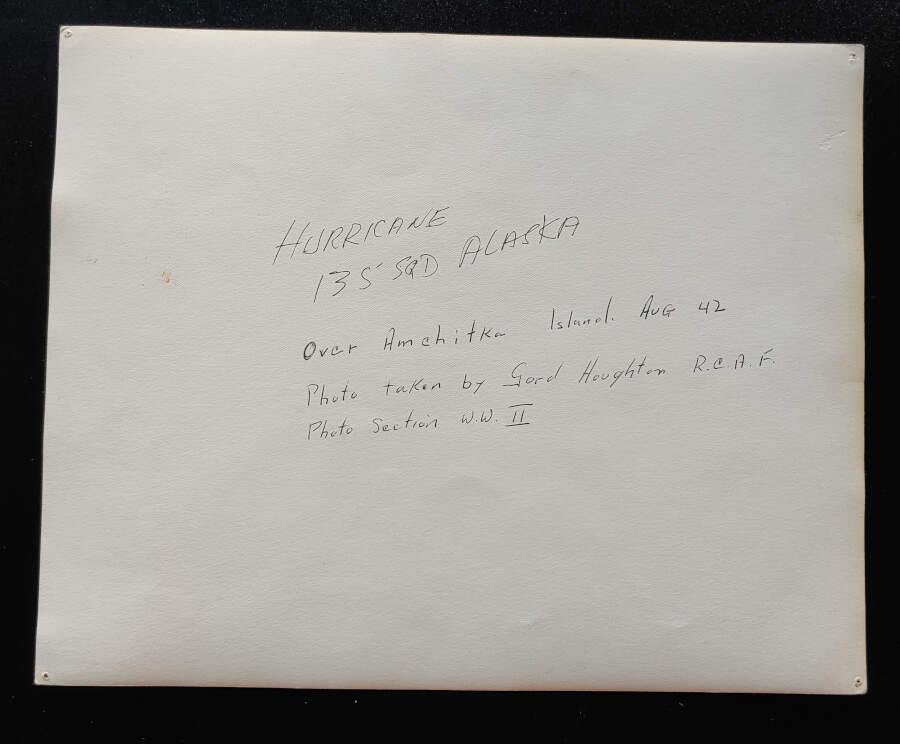 HURRICANE
135 SQD ALASKA
Over Amchitka Island. AUG 42
Photo taken by Gord Houghton R.C.A.F.
Photo Section W.W. II